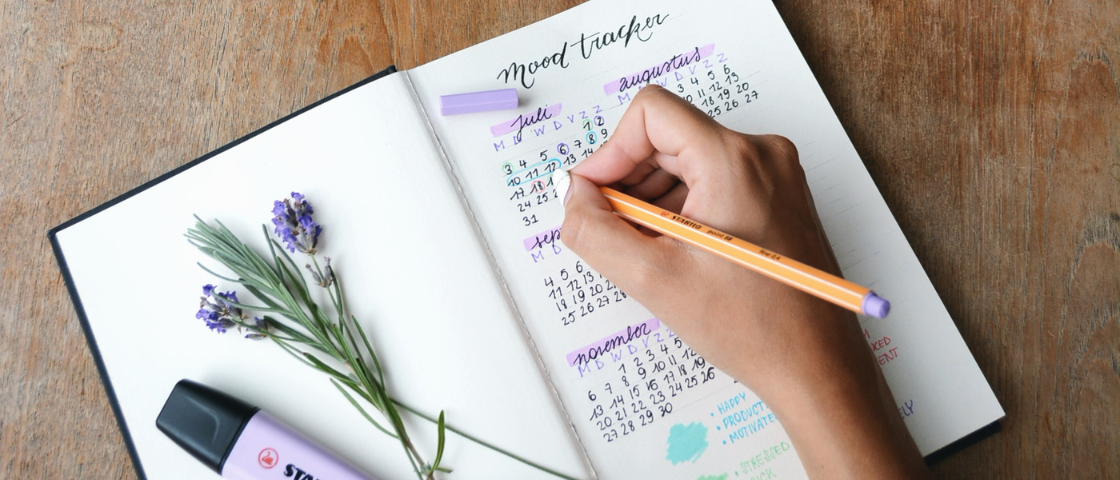 mood tracker
juli
M D W D V Z Z
1 2
3 4 5 6 7 8 9
10 11 12 13 14
17 18
24 25
31
augustus
M D V Z Z
3 4 5 6
10 11 12 13
18 19 20
25 26 27
sep
M D
4 5 6
11 12 13
18 19 20
25 26 27
november
M D W D V Z
1 2 3 4 5
6 7 8 9 10 11
13 14 15 16 17 18
20 21 22 23 24 25 26
27 28 29 30
• HAPPY
• PRODUCT
• MOTIVATE
• STRESSED
STABILO point 88
STA